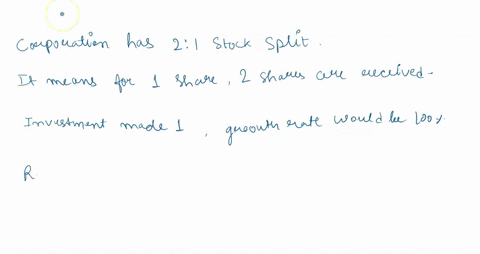 Corporation has 2:1 Stock Split.
It means for 1 share, 2 shares are received.
Investment made 1, growth rate would be 100%
R